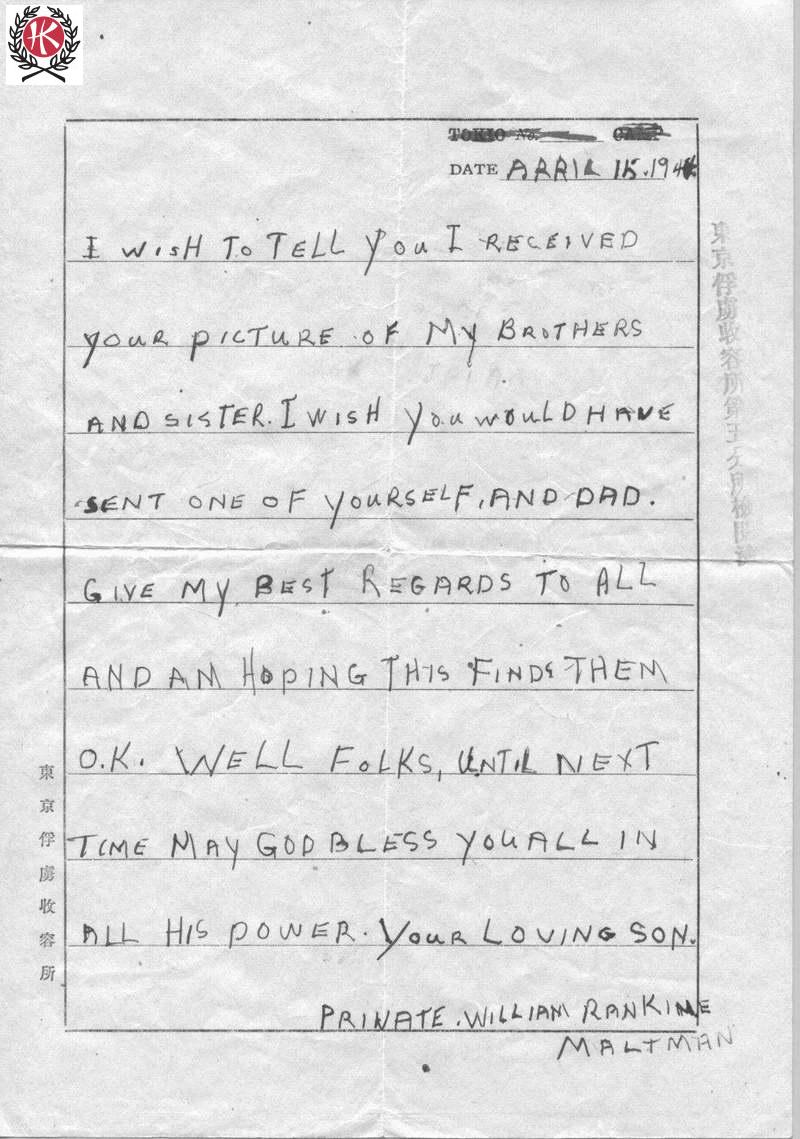 HK
TOKIO No. CAMP
DATE APRIL 15.1944
I WISH TO TELL YOU I RECEIVED
YOUR PICTURE OF MY BROTHERS
AND SISTER. I WISH YOU WOULD HAVE
SENT ONE OF YOURSELF, AND DAD.
GIVE MY BEST REGARDS TO ALL
AND AM HOPING THIS FINDS THEM
O.K. WELL FOLKS, UNTIL NEXT
TIME MAY GOD BLESS YOU ALL IN
ALL HIS POWER. YOUR LOVING SON.
PRIVATE. WILLIAM RANKINE
MALTMAN
東京俘虜收容所
東京俘虜收容所第五分所檢閲